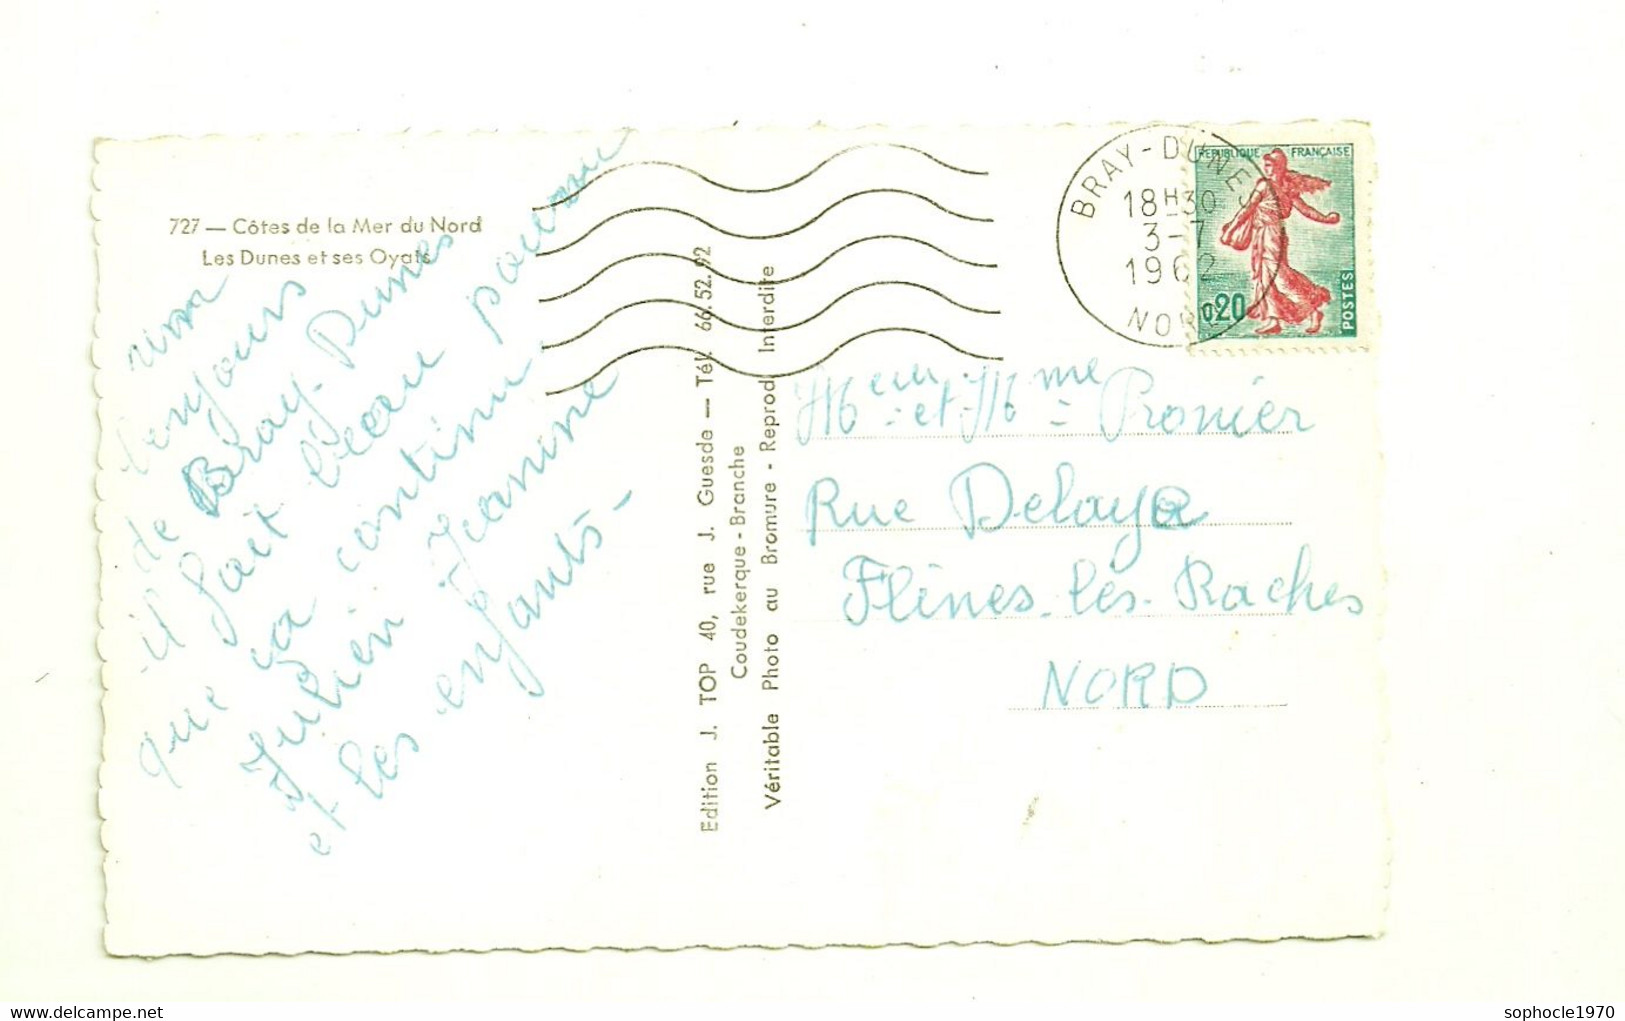 727 — Côtes de la Mer du Nord
Les Dunes et ses Oyats
BRAY-DUNES
18H30
3-7
1962
NORD
REPUBLIQUE FRANÇAISE
0,20
POSTES
de Bray-Dunes
il fait beau pourvu
que ça continu.
Julien Jeannine
et les enfants-
Edition J. TOP 40, rue J. Guesde — Tél. 66.52.92
Coudekerque-Branche
Véritable Photo au Bromure - Reprod. Interdite
Meur et Mme Pronier
Rue Delaye
Flines-les-Raches
NORD
www.delcampe.net
sophocle1970